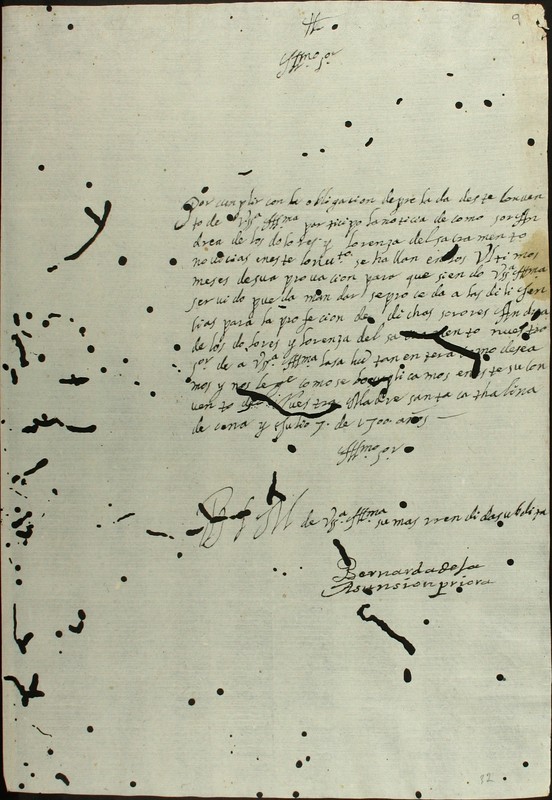 9
Yllmo Sor
Por cumplir con la obligacion de prelada deste conven
to de Vsª Yllma participo la noticia de como sor An
drea de los dolores y lorenza del sacramento
novicias eneste convto se hallan en los Ultimos
meses de sua provacion para que siendo Vsª Yllma
servido pueda mandar se proceda a las dilijen
cias para la profecion de dichas sorores Andrea
de los dolores y lorenza del sacramento nuestro
sor de a Vsª Yllma la salud tan entera como desea
mos y nos le ge como se lo suplicamos en este su con
vento de Nuestra Madre santa cathalina
de cena y Julio 7. de 1700 años
Yllmo sor
B L M de Vsª Yllma su mas rrendida subdita
Bernarda de la
Asunsion priora
12